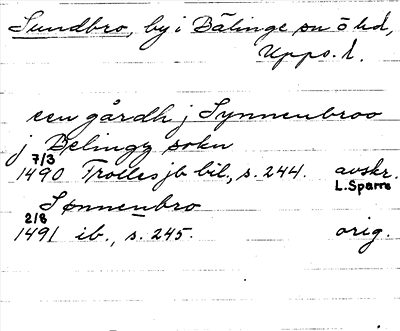 Sundbro, by i Bälinge sn ö hd,
Upps. l.
een gårdh j Synnenbroo
j Belingy sokn
7/3
1490 Trolles jb bil., s. 244. avskr.
L. Sparre
Sønnenbro
2/8
1491 ib., s. 245. orig.